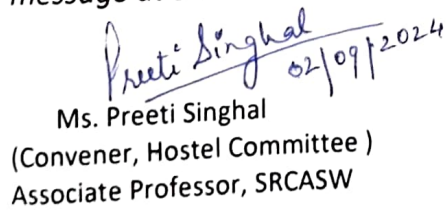 message at
Preeti Singhal
02/09/2024
Ms. Preeti Singhal
(Convener, Hostel Committee )
Associate Professor, SRCASW